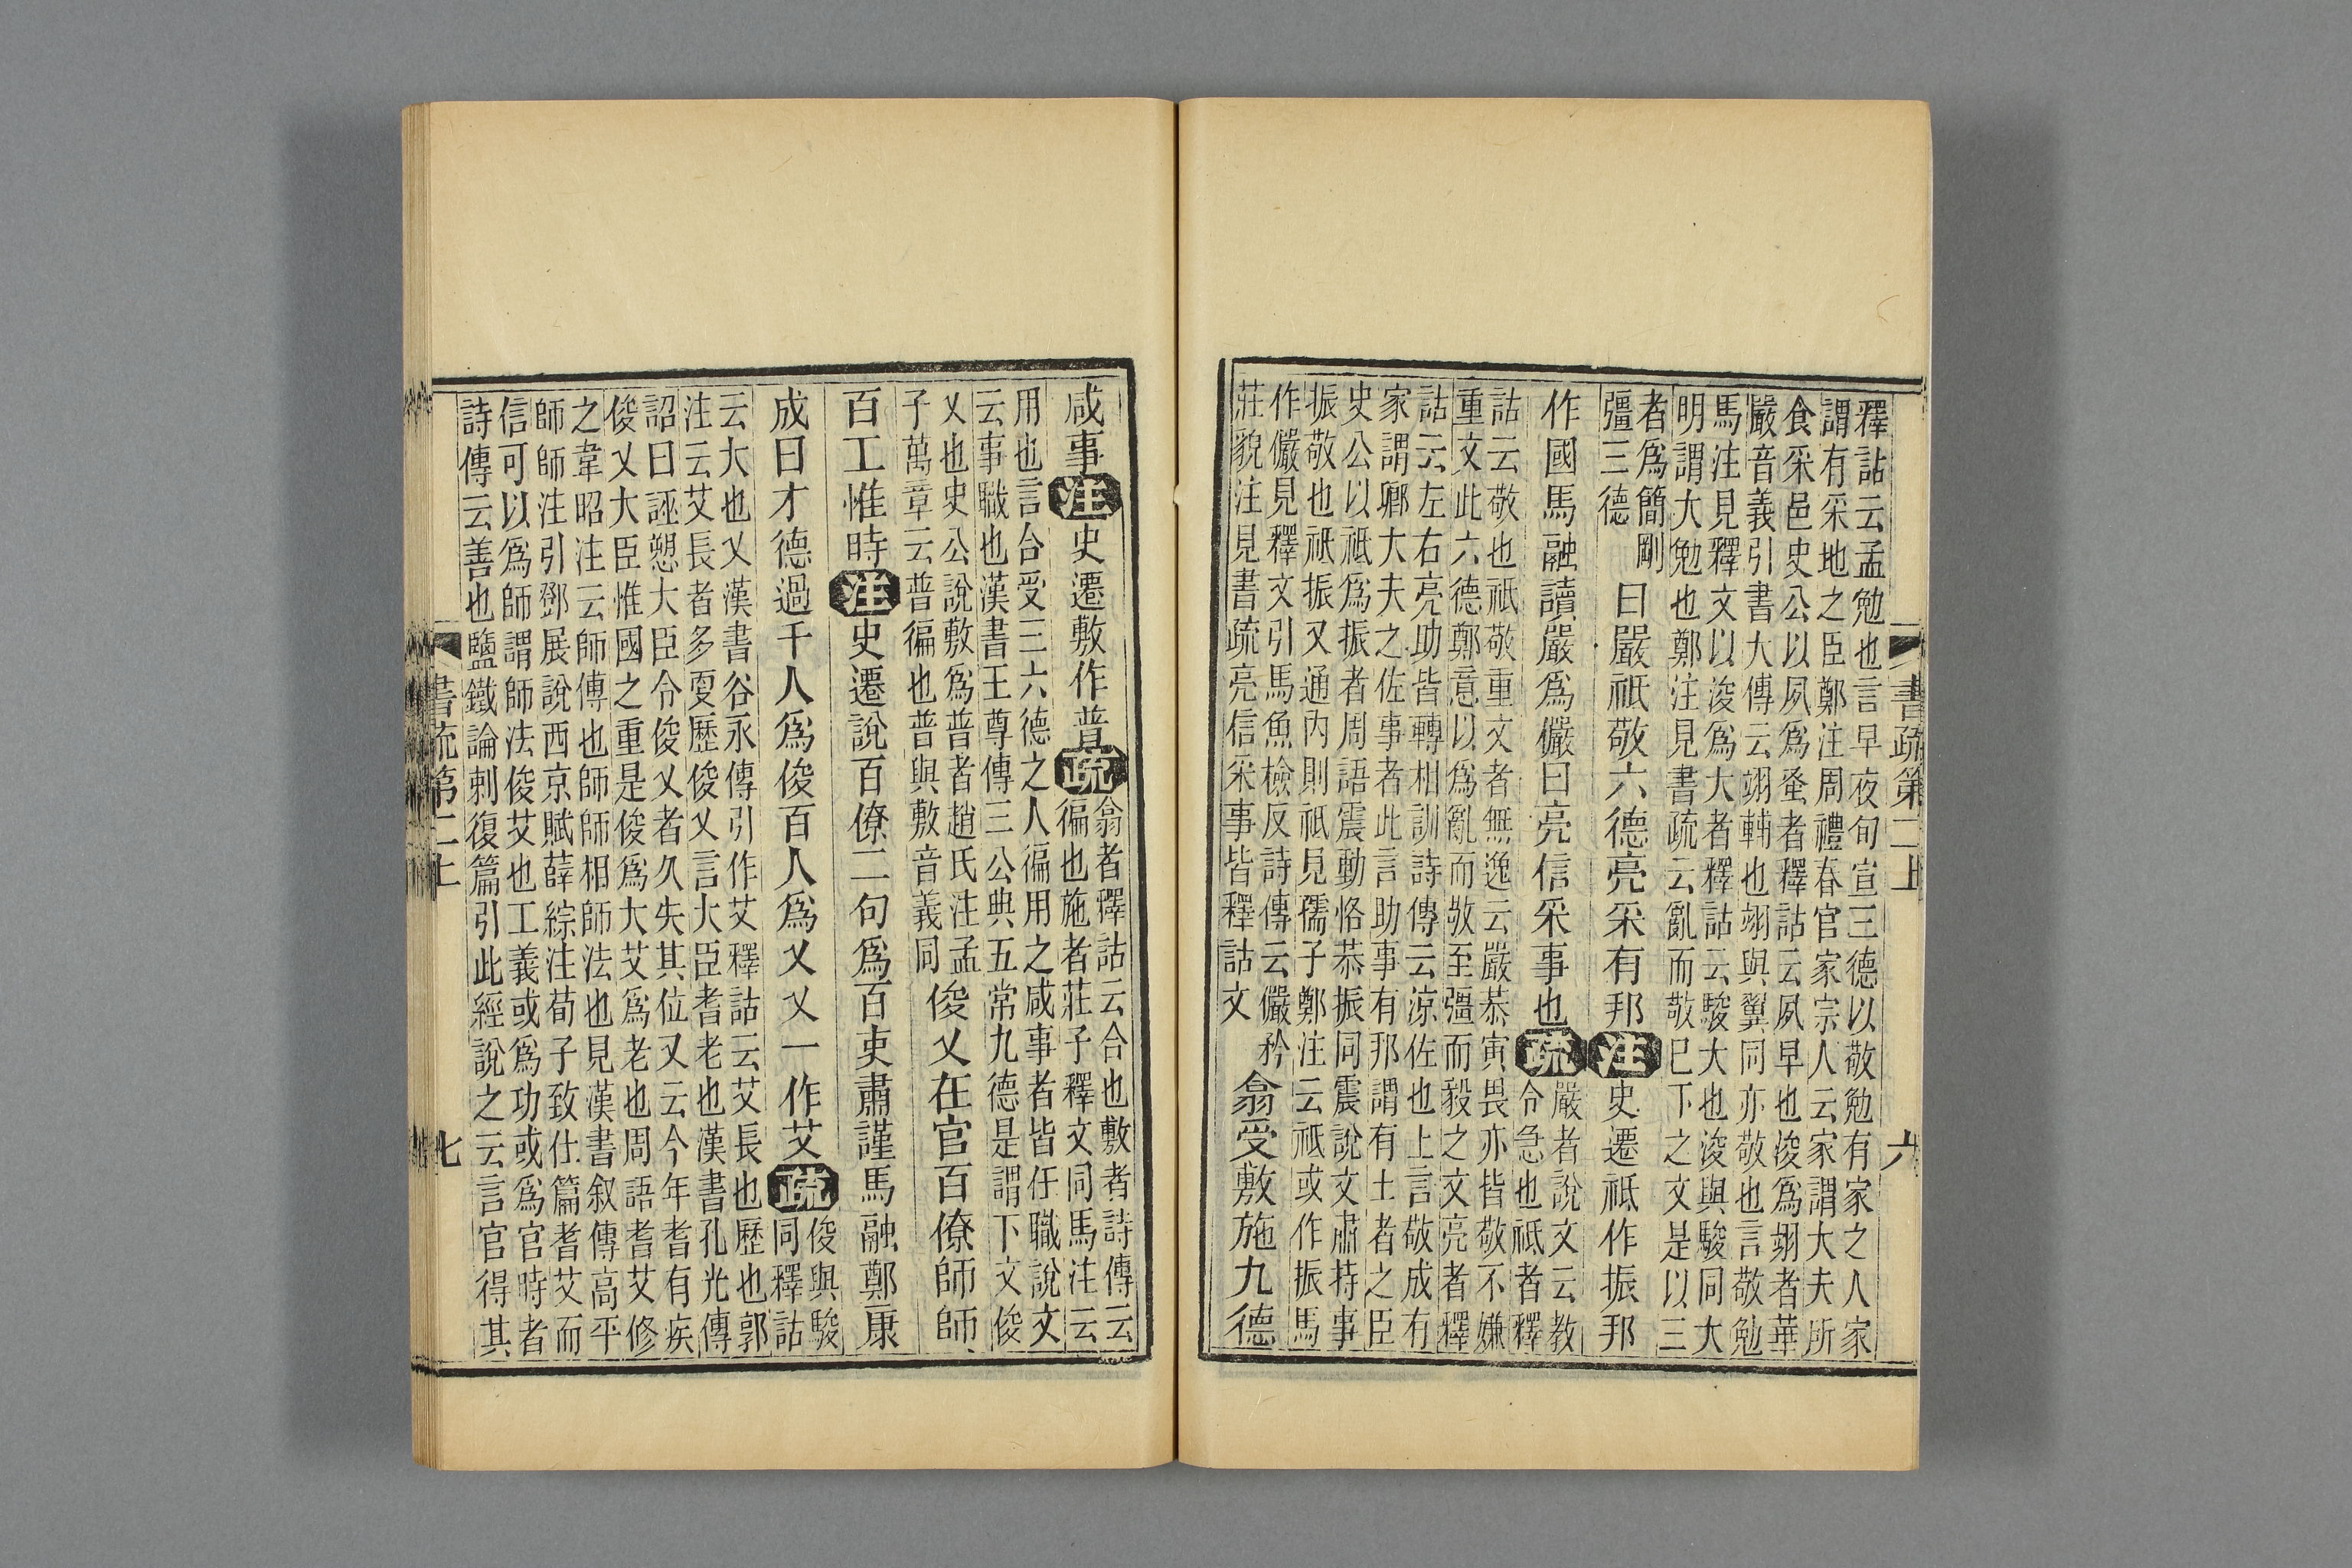 書疏第二上
六
釋詁云孟勉也言早夜旬宣三德以敬勉有家之人家
謂有采地之臣鄭注周禮春官家宗人云家謂大夫所
食采邑史公以夙爲蚤者釋詁云夙早也浚爲翊者華
嚴音義引書大傳云翊輔也翊與翼同亦敬也言敬勉
馬注見釋文以浚爲大者釋詁云駿大也浚與駿同大
明謂大勉也鄭注見書疏云亂而敬巳下之文是以三
者爲簡剛
彊三德
曰嚴祗敬六德亮采有邦注史遷祗作振邦
作國馬融讀嚴爲儼曰亮信采事也疏
嚴者說文云教
令急也祗者釋
詁云敬也祗敬重文者無逸云嚴恭寅畏亦皆敬不嫌
重文此六德鄭意以爲亂而敬至彊而毅之文亮者釋
詁云左右亮助皆轉相訓詩傳云涼佐也上言敬成有
家謂卿大夫之佐事者此言助事有邦謂有土者之臣
史公以祗爲振者周語震動恪恭振同震說文肅持事
振敬也祗振又通內則祗見孺子鄭注云祗或作振馬
作儼見釋文引馬魚檢反詩傳云儼矜
莊貌注見書疏亮信采事皆釋詁文
翕受敷施九德
咸事注史遷敷作普疏
翕者釋詁云合也敷者詩傳云
徧也施者莊子釋文同馬注云
用也言合受三六德之人徧用之咸事者皆任職說文
云事職也漢書王尊傳三公典五常九德是謂下文俊
乂也史公說敷爲普者趙氏注孟
子萬章云普徧也普與敷音義同
俊乂在官百僚師師
百工惟時注史遷說百僚二句爲百吏肅謹馬融鄭康
成曰才德過千人爲俊百人爲乂乂一作艾疏
俊與駿
同釋詁
云大也乂漢書谷永傳引作艾釋詁云艾長也歷也郭
注云艾長者多更歷俊乂言大臣耆老也漢書孔光傳
詔曰誣愬大臣令俊乂者久失其位又云今年耆有疾
俊乂大臣惟國之重是俊爲大艾爲老也周語耆艾修
之韋昭注云師傅也師師相師法也見漢書叙傳高平
師師注引鄧展說西京賦薛綜注荀子致仕篇耆艾而
信可以爲師謂師法俊艾也工義或爲功或爲官時者
詩傳云善也鹽鐵論刺復篇引此經說之云言官得其
書疏第二上
七